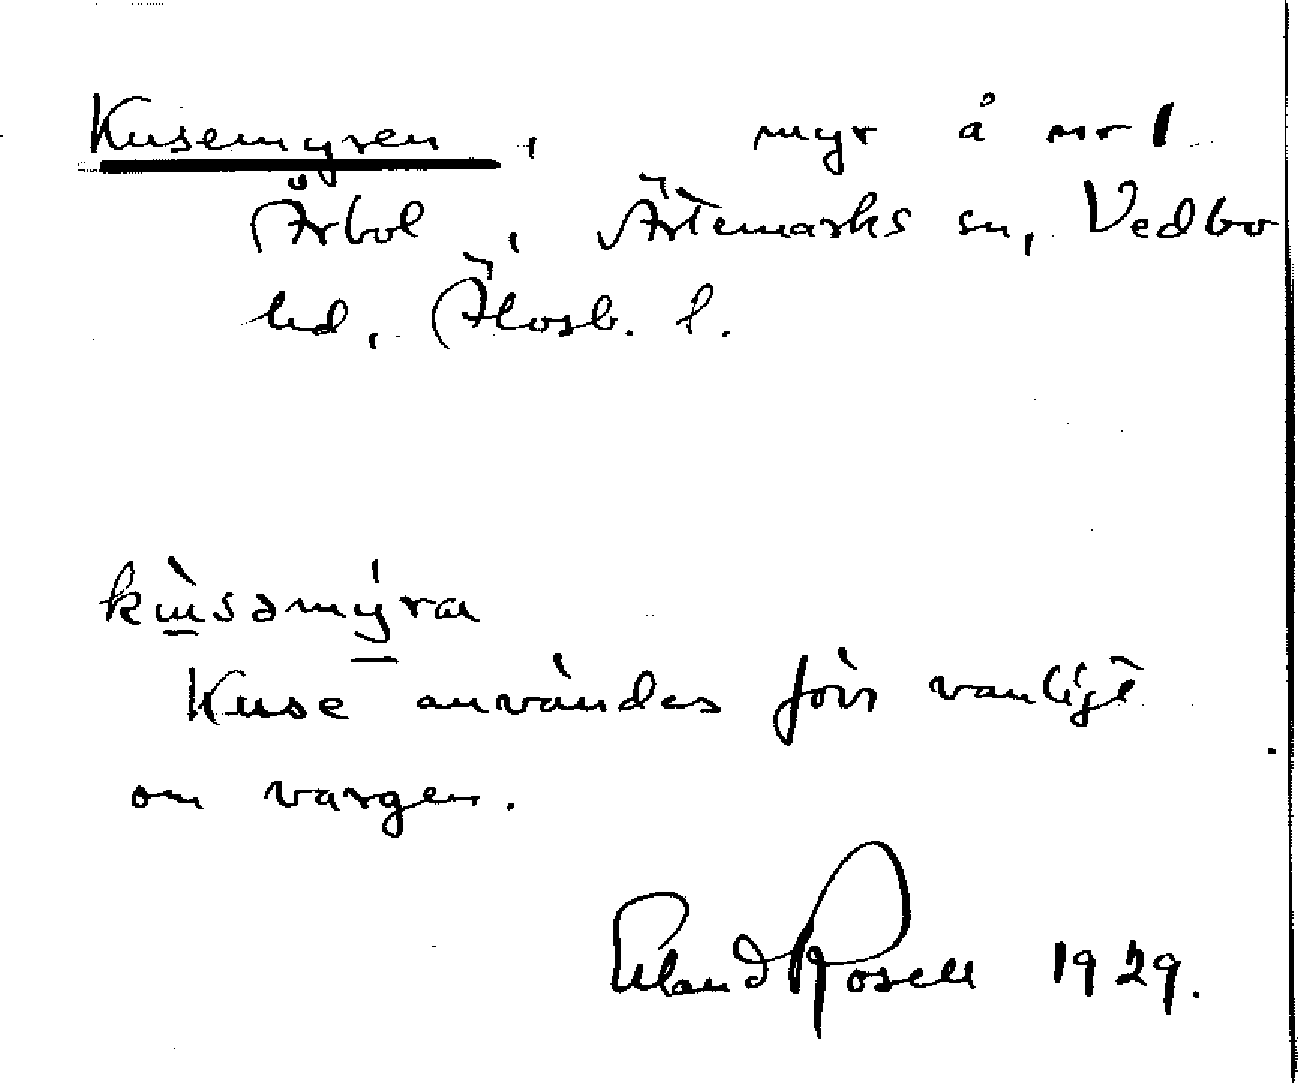 Kusemyren, myr å nr 1
Ärbol, Ärtemarks sn, Vedbo
hd, Älvsb. l.
kùsəmýra
Kuse användes förr vanligt
om vargen.
Erland Rosell 1929.